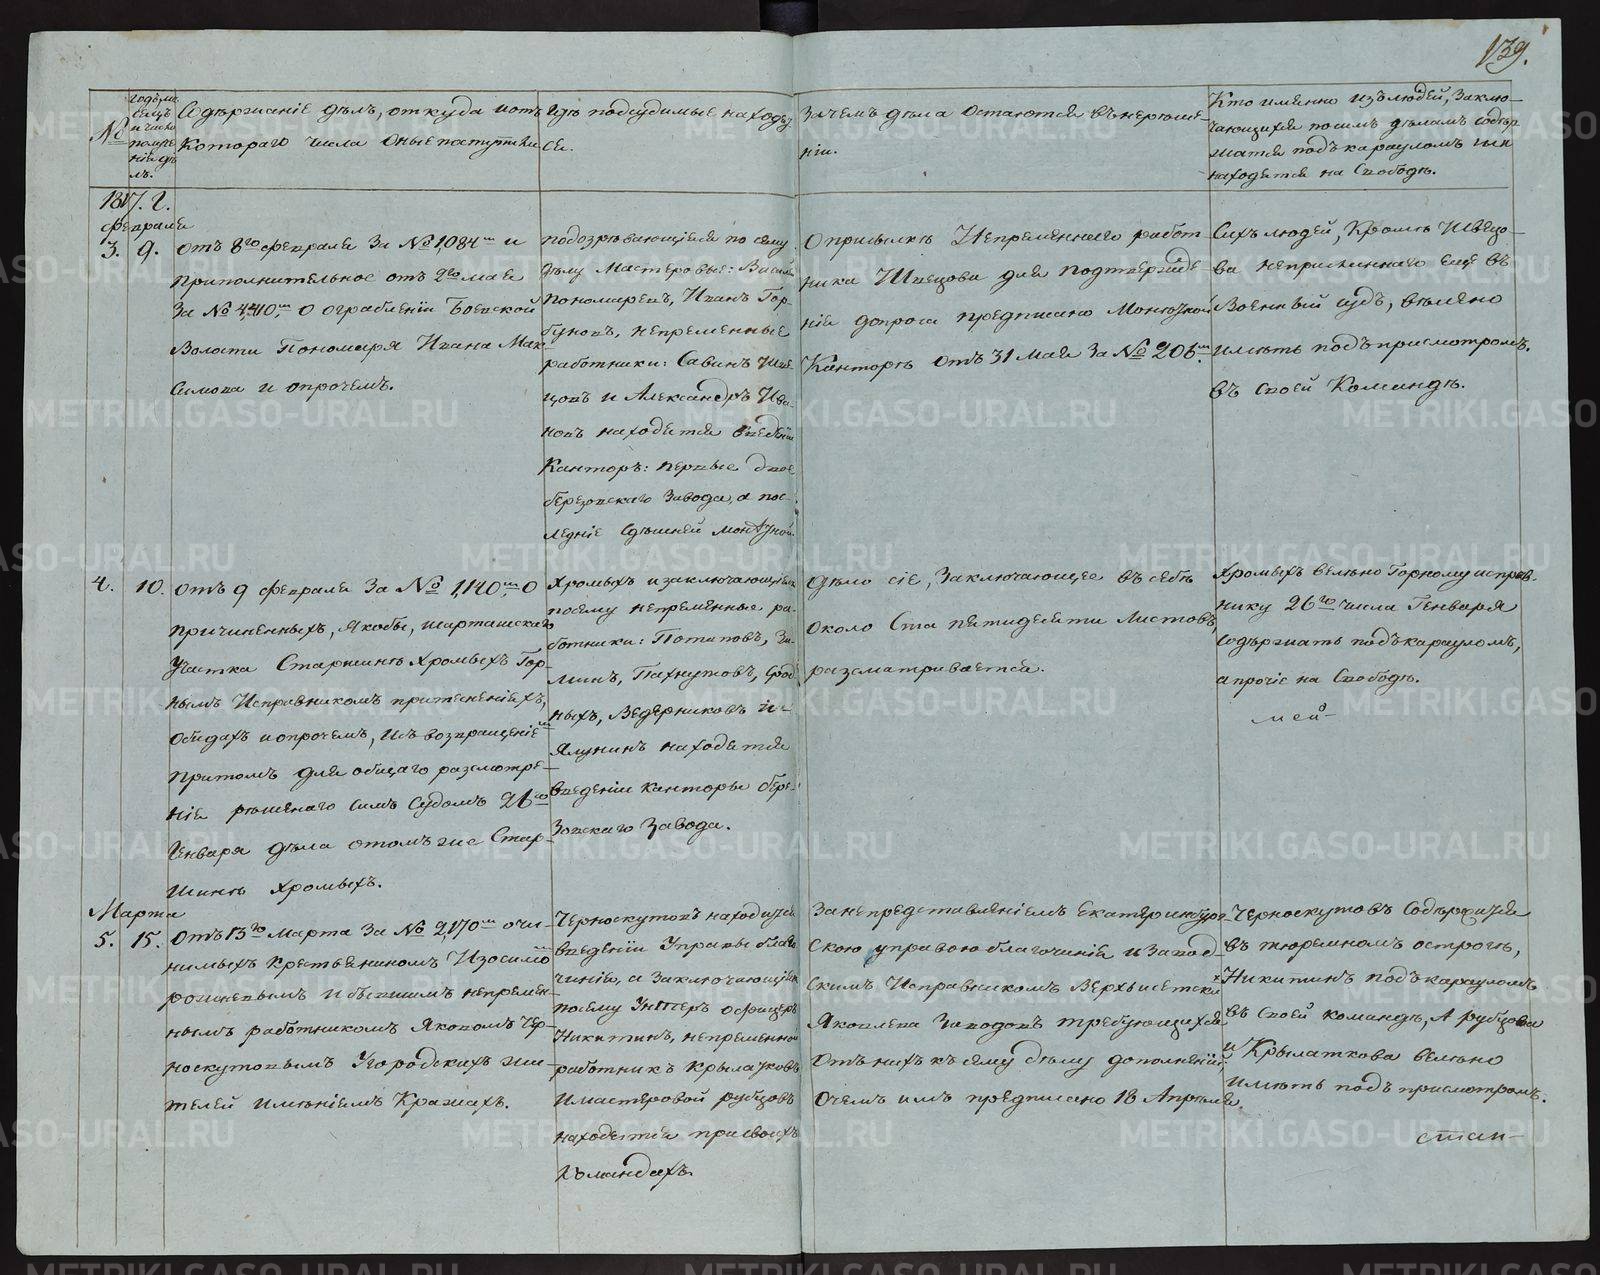 139.
№
годъ ме
сяцъ
и число
получе
нія дѣ
лъ.
Содержаніе дѣлъ, откуда и отъ
котораго числа оные поступили
Где подсудимые находят
ся.
Зачемъ дѣла остаются въ нерѣше
ніи.
Кто именно изъ людей, заклю-
чающихся по симъ дѣламъ содер
жатся подъ карауломъ или
находятся на свободѣ.
1817. г.
Февраля
3. 9. Отъ 8го Февраля за № 1,084м и
приполнительное отъ 2го мая
за № 4,410м о ограбленіи Боевской
волости Пономаря Ивана Мак-
симова и опрочемъ.
подозрѣвающіеся по сему
дѣлу Мастеровые: Васил
Пономаревъ, Иванъ Гор-
буновъ, непременные
работники: Савинъ Шве
цовъ и Александръ Ива-
новъ находятся введеніи
Канторъ: первые двое
березовскаго Завода, а пос-
ледніе Здѣшней монетной
О присылкѣ Непременнаго работ
ника Швецова для подтвержде
нія допроса предписано Монетной
Канторѣ отъ 31 Мая за № 206м.
Сихъ людей, Кромѣ Швецо-
ва неприсланнаго еще въ
Военный судъ, велѣно
имѣть подъ присмотромъ
въ своей Командѣ.
4. 10. Отъ 9 Февраля за № 1,140м, О
причиненныхъ, якобы, шарташскаго
Участка Старшинѣ Хромыхъ Гор-
нымъ Исправникомъ притесненіяхъ,
Обидахъ и опрочемъ, съ возвращеніемъ
притомъ для общаго разсмотре-
нія решенаго симъ Судомъ 26го
Генваря дѣла о томъ же Стар-
шинѣ Хромыхъ.
Хромыхъ и заключающіеся
посему непременные ра-
ботники: Потаповъ, Зи-
минъ, Пахнутовъ,
ныхъ, Ведерниковъ и
Ялунинъ находятся
введеніи канторы бере-
зовскаго Завода.
Дѣло сіе, Заключающее въ себѣ
около Ста пятидесяти Листовъ,
разсматривается.
Хромыхъ велѣно Горному исправ-
нику 26го числа Генваря
Содержать подъ карауломъ,
а прочіе на Свободѣ.
Марта
5. 15. Отъ 13го Марта за № 2,170м о чи-
нимыхъ крестьяниномъ Изосимо
и бывшимъ непремен-
нымъ работникомъ Яковомъ Чер-
носкутовымъ Угородскихъ жи-
телей имѣніемъ Кражахъ.
Черноскутовъ находится
введеніи Управы благо
чинія, а Заключающіеся
посему Унтеръ офицеръ
Никитинъ, непременной
работникъ Крылатковъ
и мастеровой рубцовъ
находятся при своихъ
Командахъ.
За непредставленіемъ Екатеринбург-
скою управою благочинія и Завод-
скимъ Исправникомъ Верхъисетских
Яковлева Заводовъ требующихся
отъ нихъ къ сему дѣлу дополненій,
О чемъ имъ предписано 18 Апреля
Черноскутовъ Содержится
въ тюремномъ острогѣ,
Никитинъ подъ карауломъ
въ своей командѣ, А рубцова
и Крылаткова велѣно
имѣть подъ присмотромъ.
стан-